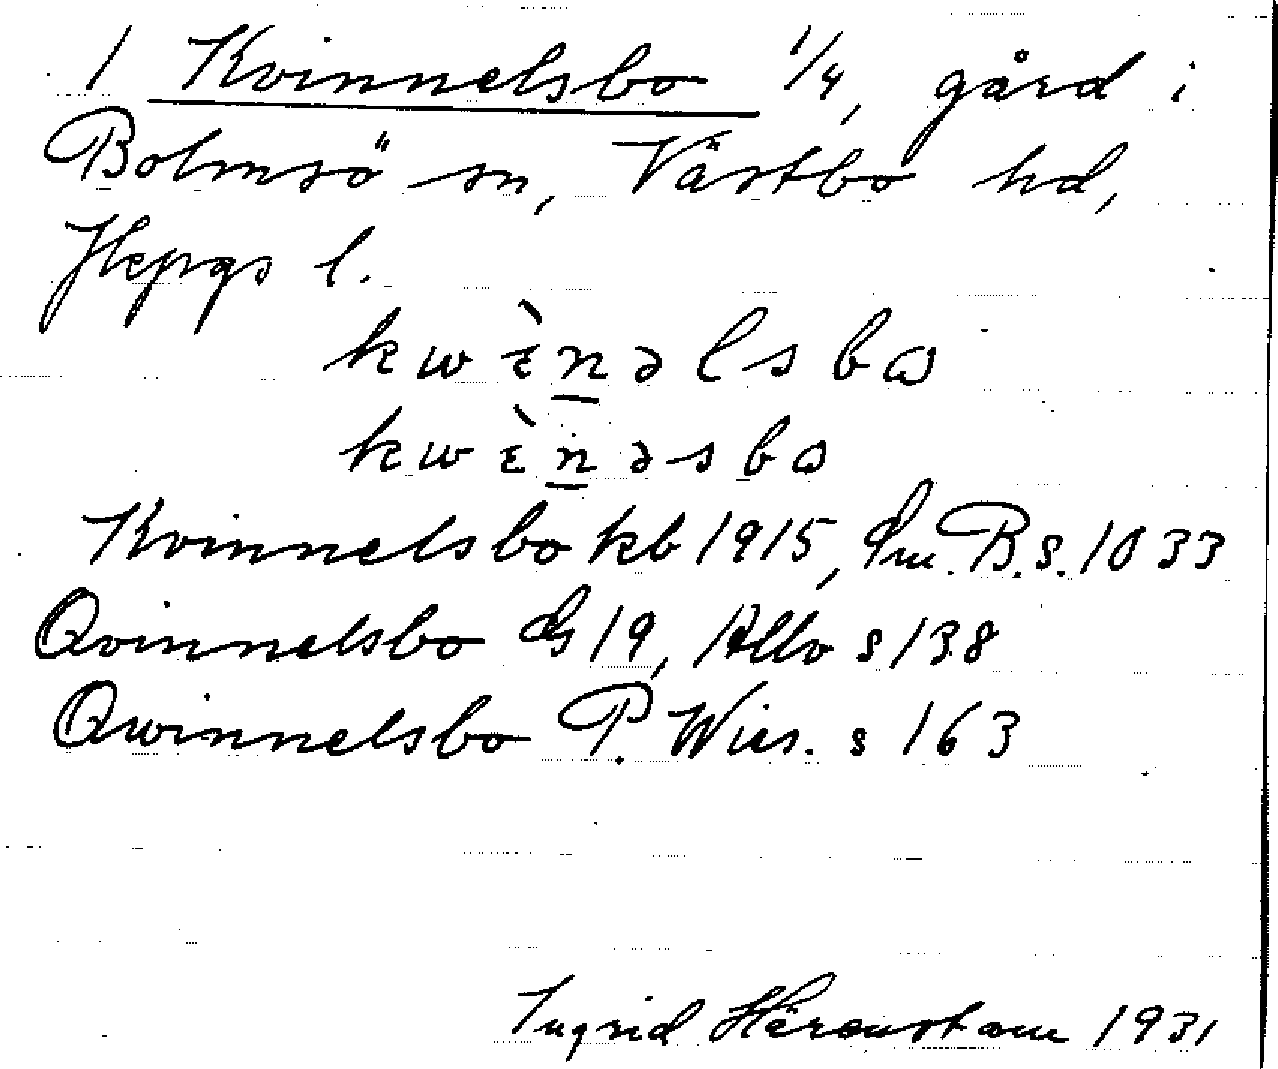 1 Kvinnelsbo 1/4, gård i
Bolmsö sn, Västbo hd,
Jkpgs l.
kwὲnəlsbω
kwὲnəsbω
Kvinnelsbo kb 1915, Sm. B. s. 1033
Qvinnelsbo GS 19, Allvo s 138
Qwinnelsbo P. Wies. s 163
Ingrid Härenstam 1931